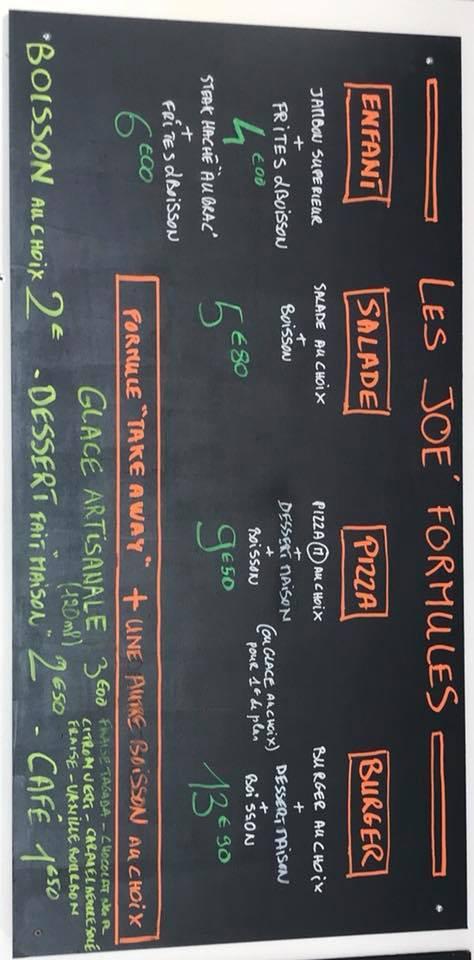 LES JOE' FORMULES
ENFANT
JAMBON SUPERIEUR
+
FRITES & BOISSON
4€00
STEAK HACHÉ "AUBRAC"
+
FRITES & BOISSON
6€00
SALADE
SALADE AU CHOIX
+
BOISSON
5€80
PIZZA
PIZZA (M) AU CHOIX
+
DESSERT MAISON
+
BOISSON
(OU GLACE AU CHOIX)
pour 1€ de plus
9€50
BURGER
BURGER AU CHOIX
+
DESSERT MAISON
+
BOISSON
13€90
FORMULE "TAKE AWAY" + UNE AUTRE BOISSON AU CHOIX
GLACE ARTISANALE 3€00
(120ml)
FRAISE TAGADA - CHOCOLAT NOIR
CITRON VERT - CARAMEL BEURRE SALÉ
FRAISE - VANILLE BOURBON
BOISSON AU CHOIX 2€ - DESSERT FAIT "MAISON" 2€50 - CAFÉ 1€50